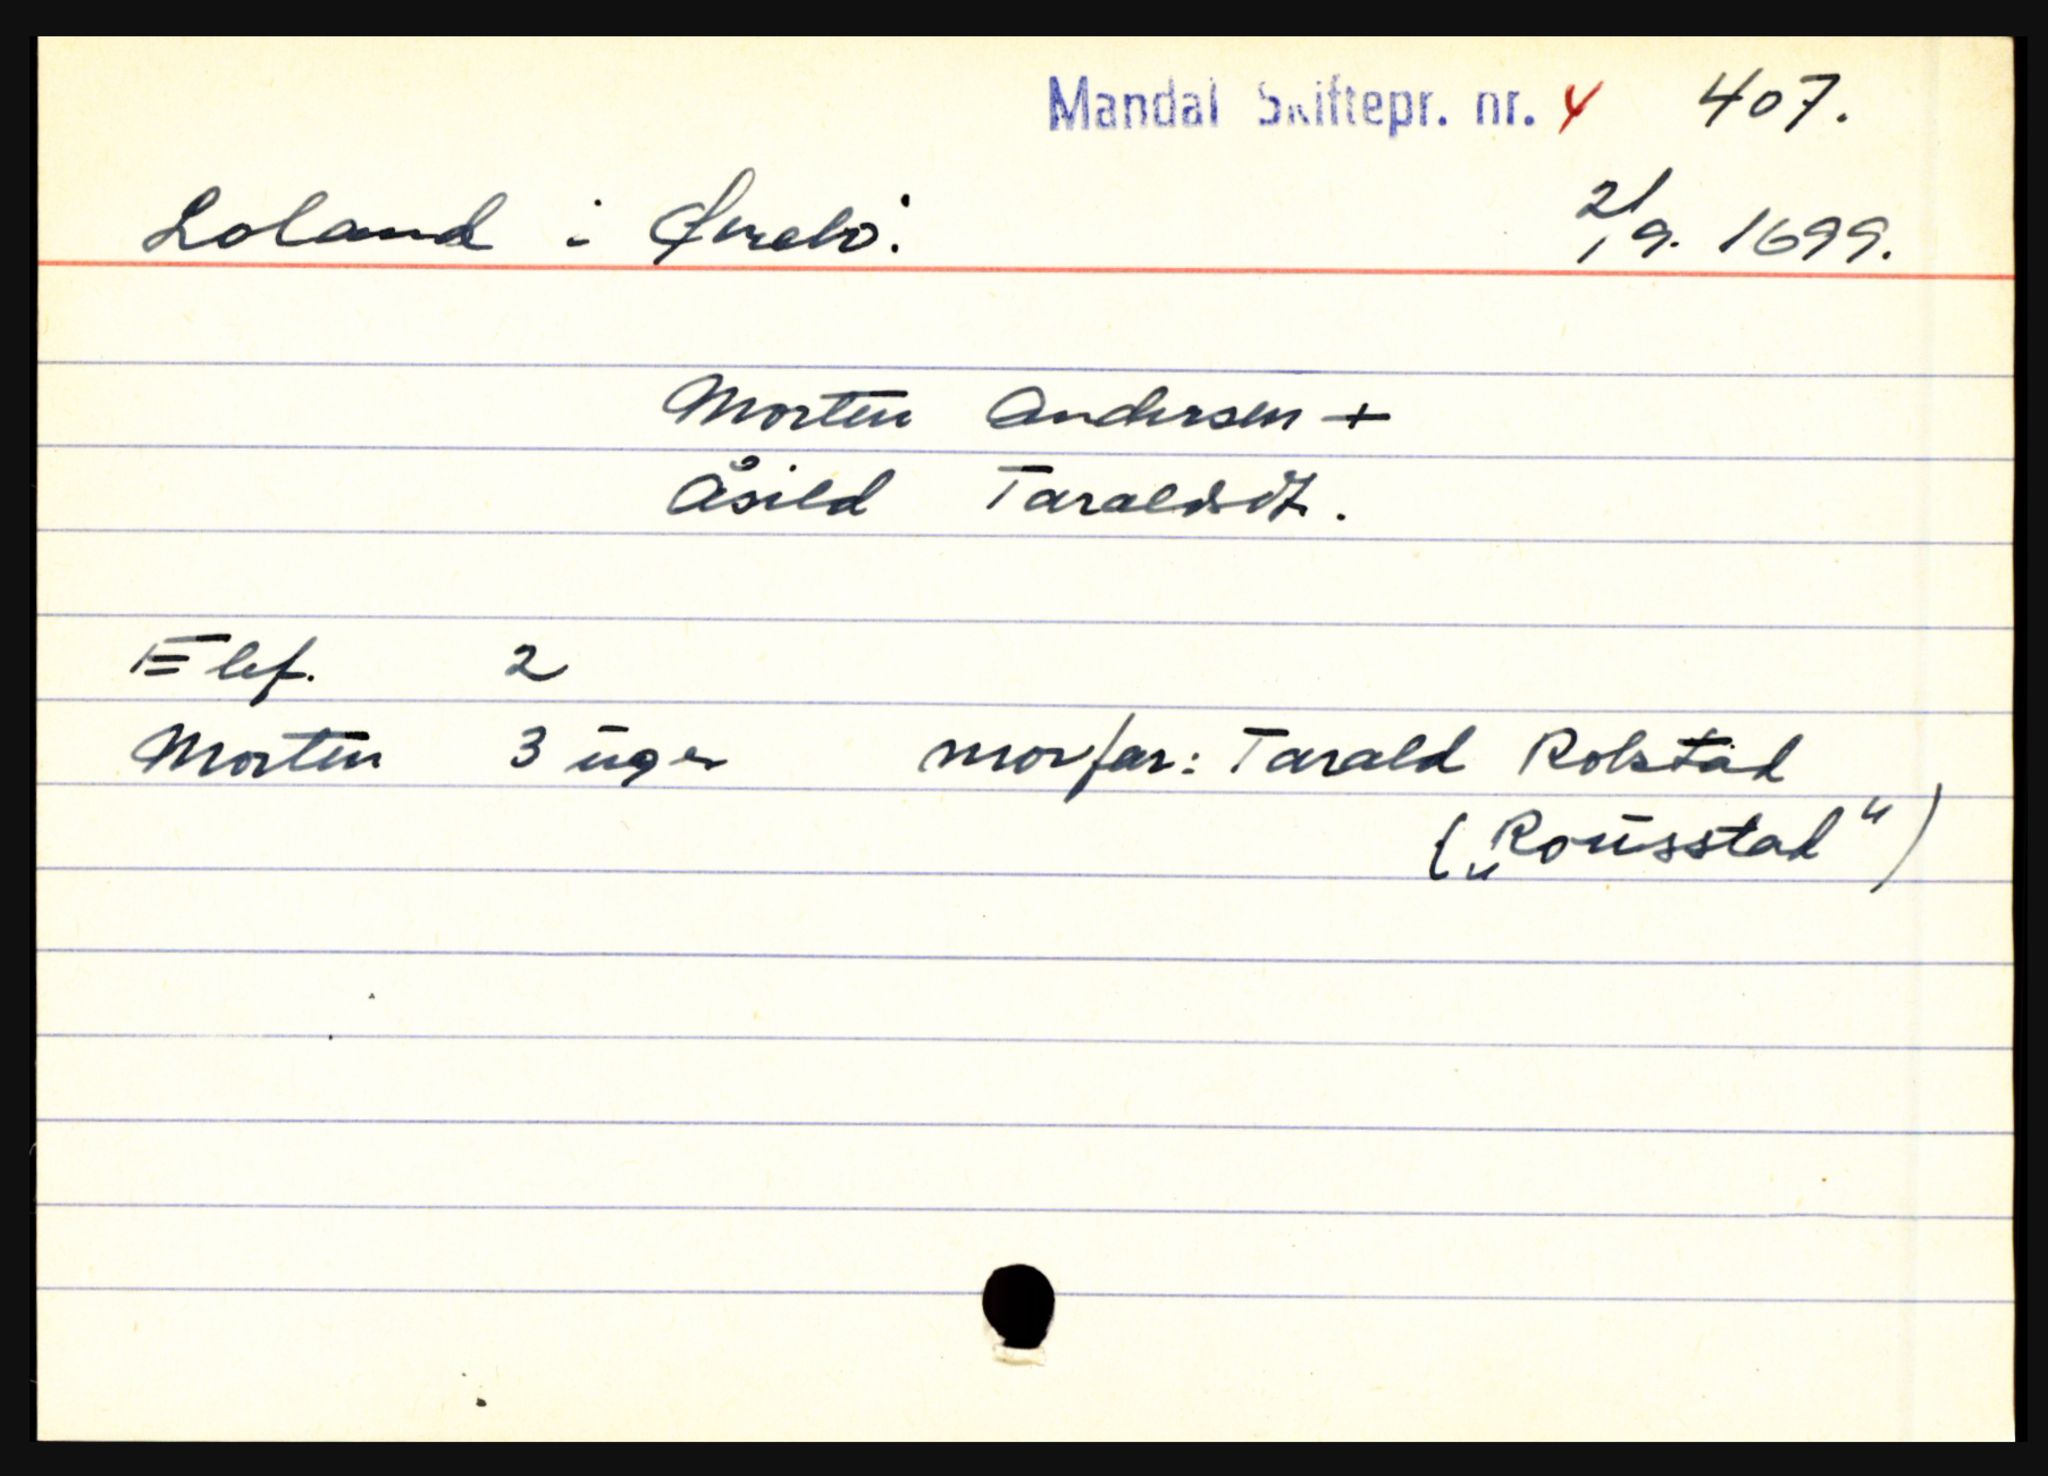 Mandal Skiftepr. nr. 4 407.
Loland i Øvrebö. 21/9. 1699.
Morten Andersen +
Åsild Taraldsdt.
Elef. 2
Morten 3 uger morfar: Tarald Rolstad
(„Rousstad")